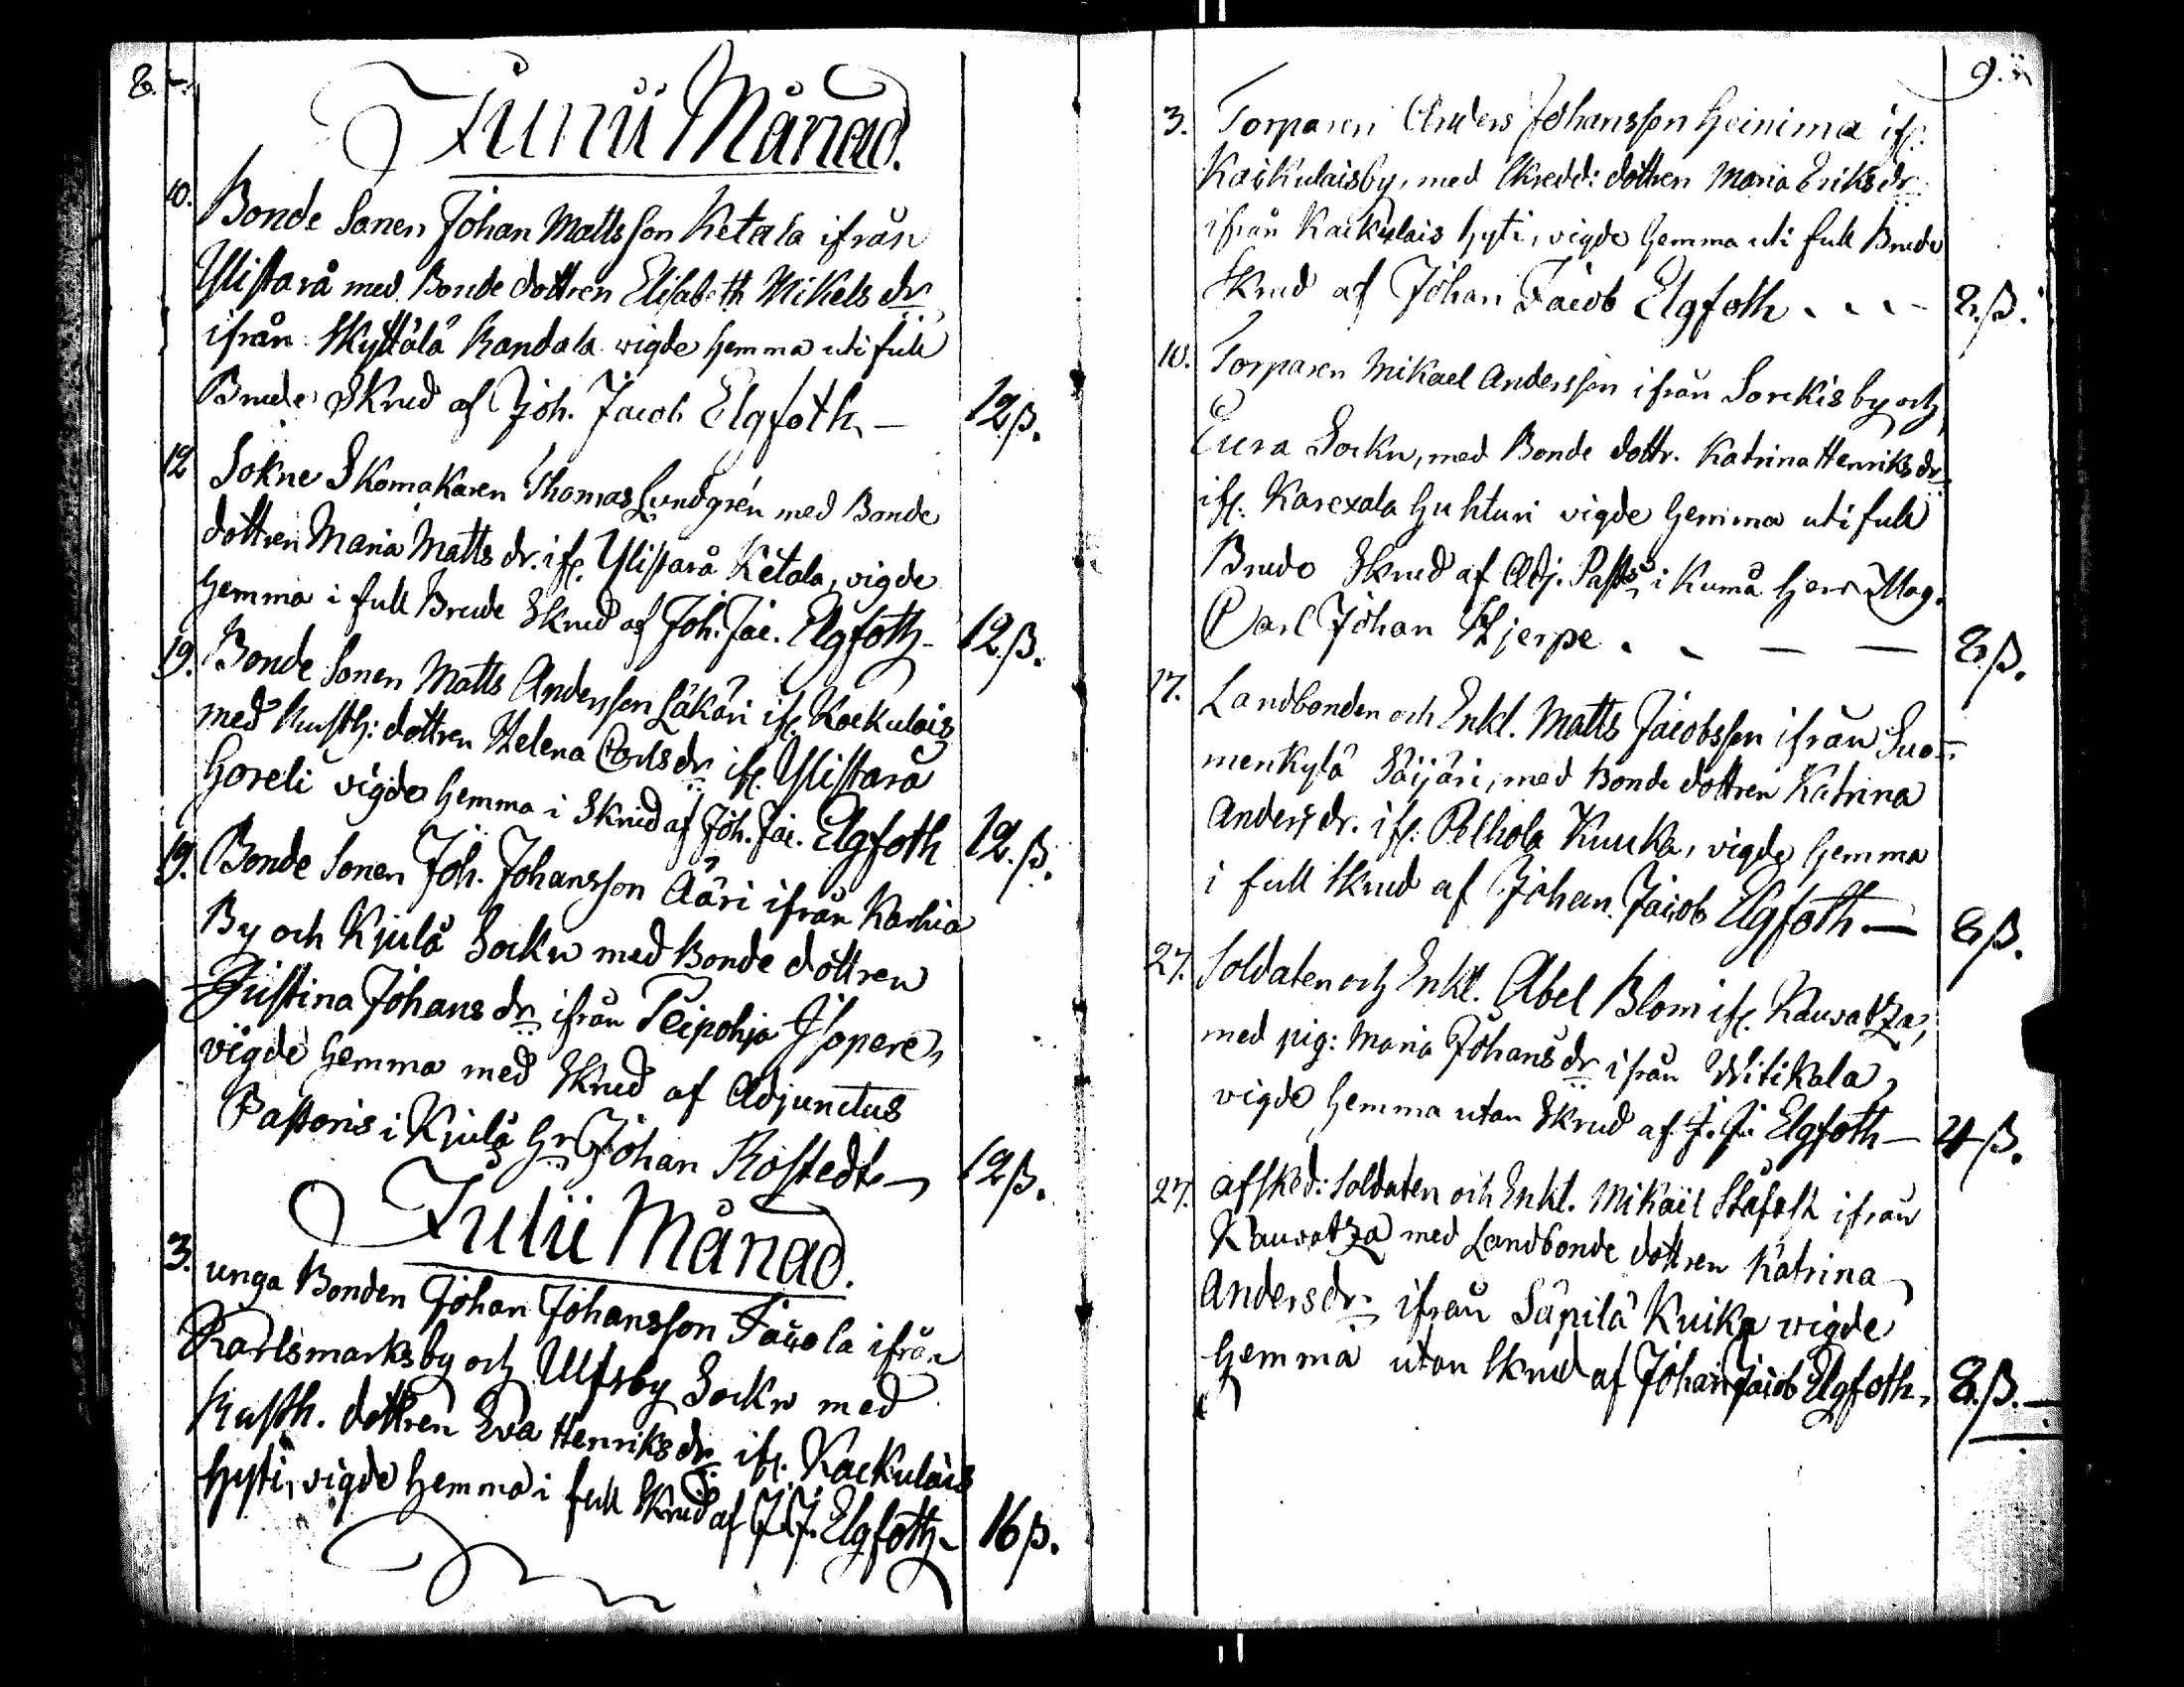 8.
Junii Månad.
10. Bonde Sonen Johan Mattsson Ketala ifrån
Ylistarå med Bonde dottren Elisabeth Mikels dr
ifrån Skyttälä Randala vigde hemma uti full
Brude Skrud af Joh. Jacob Elgfoth — 12 ß.
12 Sokne Skomakaren Thomas Lundgrén med Bonde
dottren Maria Matts dr. ifr. Ylistarå Ketala, vigde
hemma i full Brude Skrud af Joh. Jac. Elgfoth — 12 ß.
19. Bonde Sonen Matts Andersson Läkäri ifr. Kaekulais
med Rusth: dottren Helena Carls dr ifr. Ylistarå
Horeli vigde hemma i Skrud af Joh. Jac. Elgfoth 12. ß.
19. Bonde Sonen Joh. Johansson Ääri ifrån Karhia
By och Kjulå Sockn med Bonde dottren
Justina Johans dr ifrån Peipohja Isopere,
vigde hemma med Skrud af Adjunctus
Pastoris i Kjulå Hr Johan Rostedt — 12 ß.
Julii Månad.
3. unga Bonden Johan Johansson ifrån
Karlsmarks by och Ulfsby Sockn med
Rusth. dottren Eva Henriks dr ifr. Kaekulais
Hyti, vigde hemma i full Skrud af J. J. Elgfoth — 16 ß.
9.
3. Torparen Anders Johansson Heinima ifr.
Kaikulaisby, med Skredd: dottren Maria Eriks dr
ifrån Kaekulais Hyti, vigde hemma uti full Brude
Skrud af Johan Jacob Elgfoth . . . — 8. ß.
10. Torparen Mikael Andersson ifrån Sorckis by och
Eura Sockn, med Bonde dottr. Katrina Henriks dr
ifr. Karexala Huhturi vigde hemma uti full
Brude Skrud af Adj. Past: i Kumå Herr Mag.
Carl Johan Hjerpe . — — — 8 ß.
17. Landbonden och Enkl. Matts Jacobsson ifrån Suo=
menkylä Säijäri, med Bonde dottren Katrina
Anders dr. ifr. Pelhola Kuuka, vigde hemma
i full Skrud af Johan Jacob Elgfoth — 8 ß.
27. Soldaten och Enkl. Abel Blom ifr. Kauvatza,
med pig: Maria Johans dr ifrån Witikala,
vigde hemma utan Skrud af J. J. Elgfoth — 4 ß.
27. afsked: Soldaten och Enkl. Mikael ifrån
Kauvatza med Landbonde dottren Katrina
Anders dr ifrån Säpilä Kuika vigde
hemma utan Skrud af Johan Jacob Elgfoth, 8. ß. —